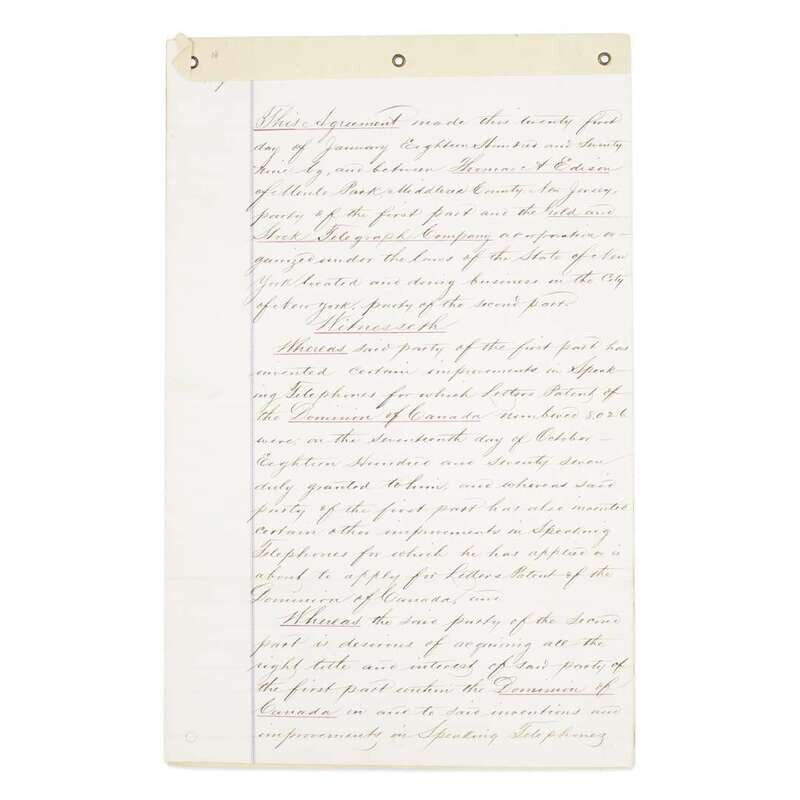 This Agreement made this twenty first
day of January Eighteen Hundred and Seventy
Nine by and between Thomas A Edison
of Menlo Park Middlesex County New Jersey,
party of the first part and the Gold and
Stock Telegraph Company a corporation or-
ganized under the laws of the State of New
York located and doing business in the City
of New York, party of the second part
Witnesseth
Whereas said party of the first part has
invented certain improvements in Speak-
ing Telephones for which Letters Patent of
the Dominion of Canada numbered 8026
were on the seventeenth day of October
Eighteen Hundred and seventy seven
duly granted to him, and whereas said
party of the first part has also invented
certain other improvements in Speaking
Telephones for which he has applied or is
about to apply for Letters Patent of the
Dominion of Canada, and
Whereas the said party of the second
part is desirous of acquiring all the
right title and interest of said party of
the first part within the Dominion of
Canada in and to said inventions and
improvements in Speaking Telephones